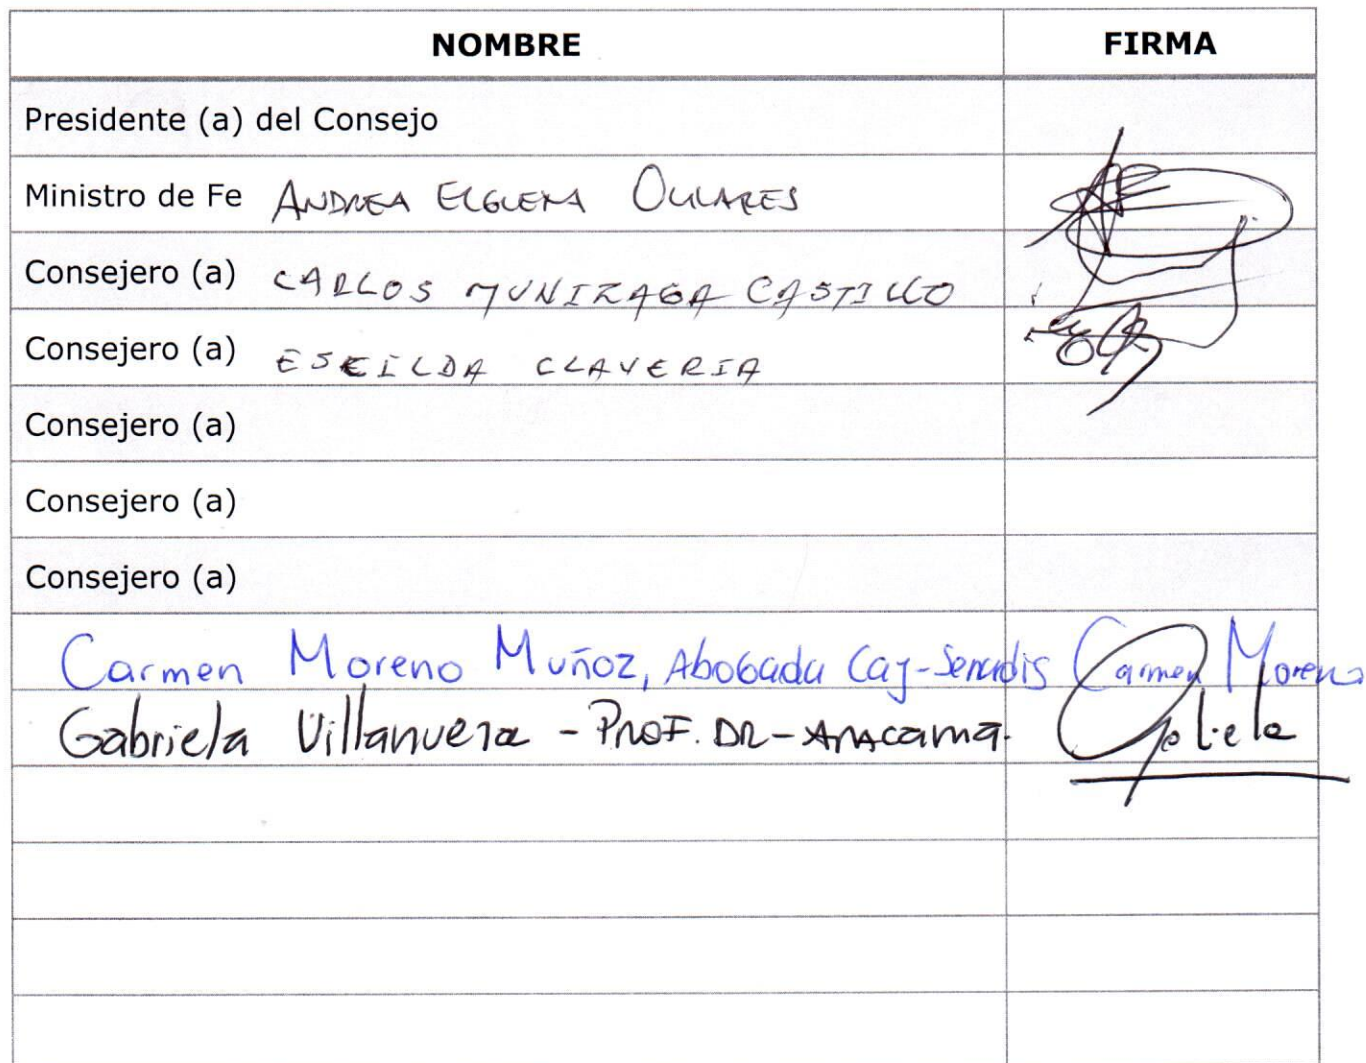 NOMBRE FIRMA
Presidente (a) del Consejo
Ministro de Fe ANDREA ELGUERA OLLARES
Consejero (a) CARLOS MUNIZAGA CASTILLO
Consejero (a) ESEILDA CLAVERIA
Consejero (a)
Consejero (a)
Consejero (a)
Carmen Moreno Muñoz, Abogada Caj-Senadis Carmen Moreno
Gabriela Villanueva - PROF. DR - Atacama. Gabriela